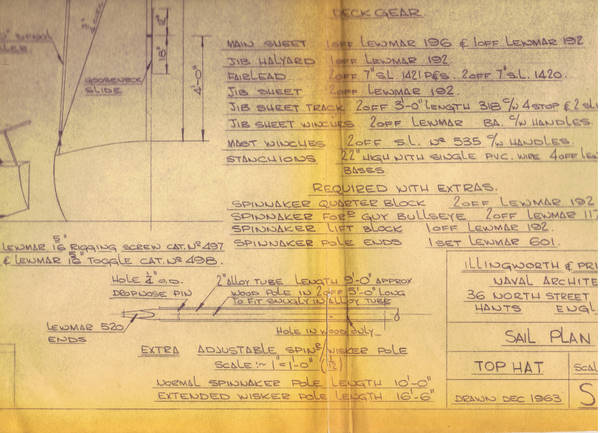 DECK GEAR
MAIN SHEET 1OFF LEWMAR 196 & 1OFF LEWMAR 192
JIB HALYARD 1OFF LEWMAR 192
FAIRLEAD 2OFF 7" S.L. 1421 P&S. 2OFF 7" S.L. 1420.
JIB SHEET 2OFF LEWMAR 192.
JIB SHEET TRACK 2OFF 3'-0" LENGTH 318 C/W 4 STOP & 2 SLI
JIB SHEET WINCHES 2OFF LEWMAR BA. C/W HANDLES
MAST WINCHES 2OFF S.L. Nº 535 C/W HANDLES.
STANCHIONS 22" HIGH WITH SINGLE P.V.C. WIRE 4OFF
BASES.
REQUIRED WITH EXTRAS.
SPINNAKER QUARTER BLOCK 2OFF LEWMAR 192
SPINNAKER FORD GUY BULLSEYE 2OFF LEWMAR 117
SPINNAKER LIFT BLOCK 1OFF LEWMAR 192.
SPINNAKER POLE ENDS 1 SET LEWMAR 601.
GOOSENECK
SLIDE
18"
4'-0"
3"
LEWMAR 5/16" RIGGING SCREW CAT. Nº 497
& LEWMAR 5/16" TOGGLE CAT. Nº 498.
HOLE 1/4" O.D.
DROPNOSE PIN
2" ALLOY TUBE LENGTH 9'-0" APPROX
WOOD POLE IN 2OFF 5'-0" LONG
TO FIT SNUGLY IN ALLOY TUBE
LEWMAR 520
ENDS
HOLE IN WOOD ONLY
EXTRA ADJUSTABLE SPINR WISKER POLE
SCALE :~ 1" = 1'-0" (1/12)
NORMAL SPINNAKER POLE LENGTH 10'-0"
EXTENDED WISKER POLE LENGTH 16'-6"
ILLINGWORTH & PRI
NAVAL ARCHITE
36 NORTH STREET
HANTS ENGL
SAIL PLAN
TOP HAT
SCAL
DRAWN DEC 1963
S